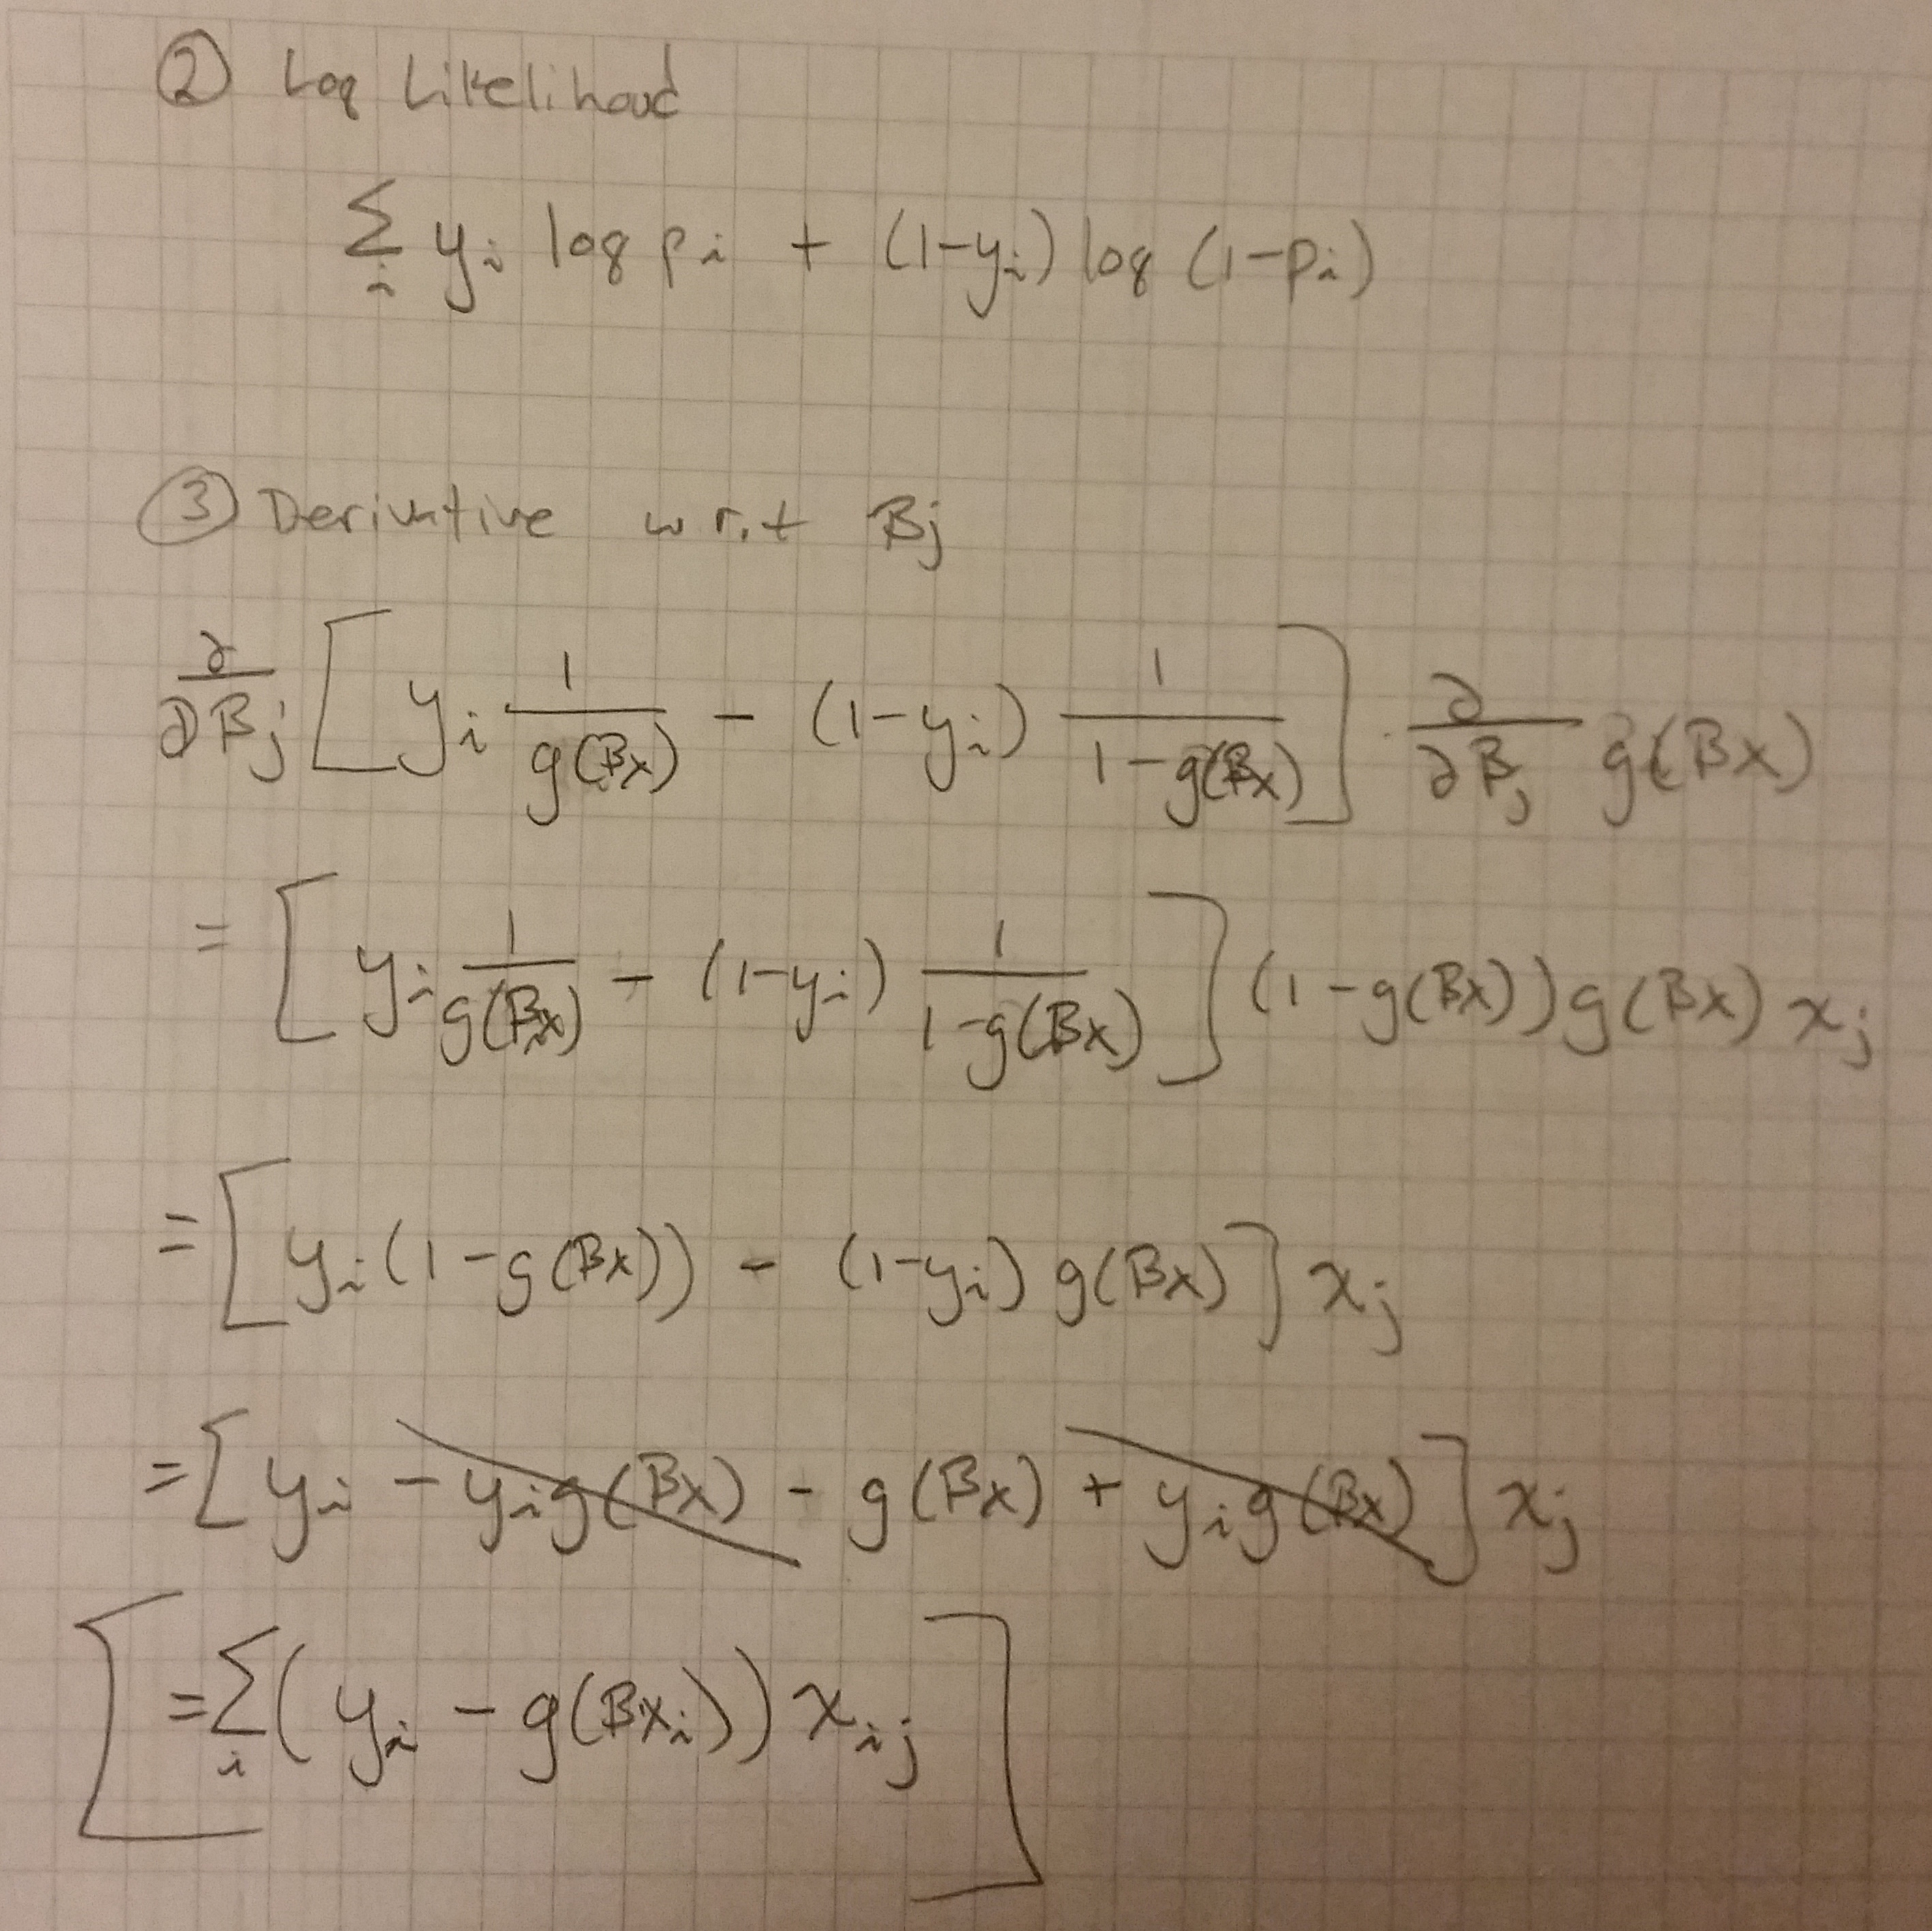 ② Log Likelihood
∑_i y_i log p_i + (1-y_i) log (1-p_i)
③ Derivative w r.t B_j
∂/∂B_j [ y_i 1/g(Bx) - (1-y_i) 1/(1-g(Bx)) ] · ∂/∂B_j g(Bx)
= [ y_i 1/g(Bx) - (1-y_i) 1/(1-g(Bx)) ] (1-g(Bx)) g(Bx) x_j
= [ y_i (1-g(Bx)) - (1-y_i) g(Bx) ] x_j
= [ y_i - y_i g(Bx) - g(Bx) + y_i g(Bx) ] x_j
[ = ∑_i ( y_i - g(Bx_i) ) x_ij ]